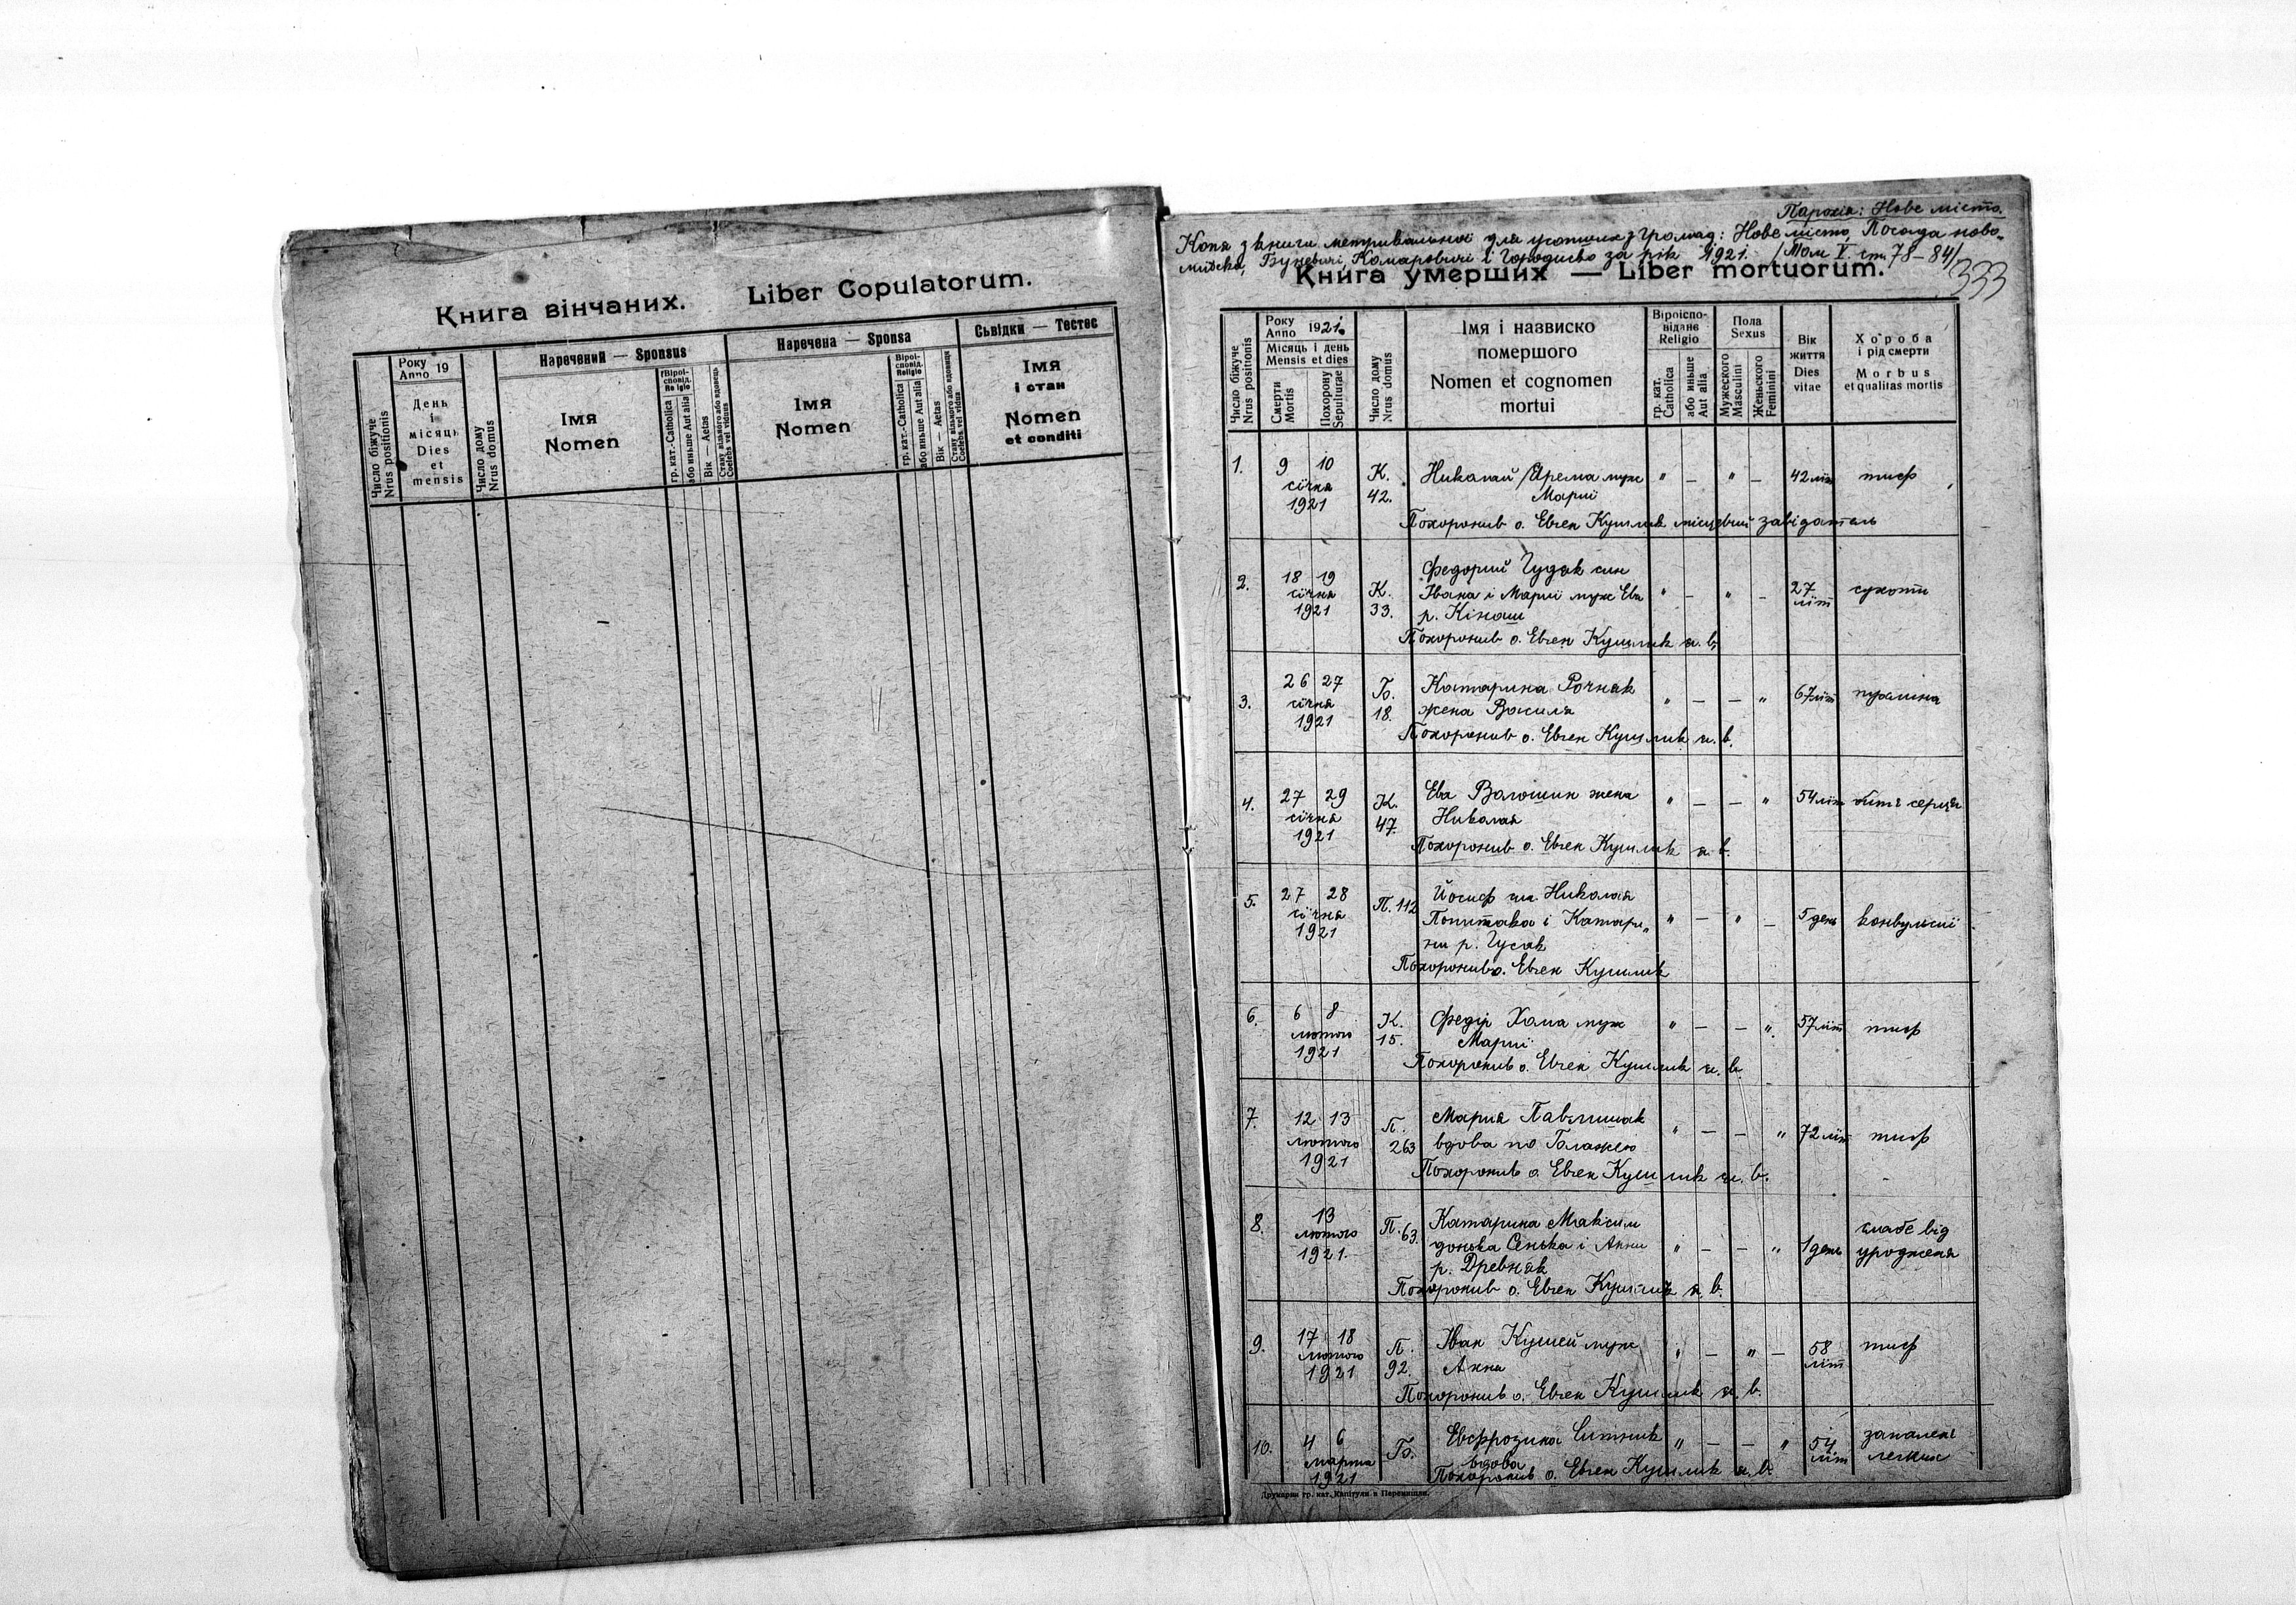 Книга вінчаних. Liber Copulatorum.
Число біжуче
Nrus positionis
Року
Anno 19
День
і
місяць
Dies
et
mensis
Число дому
Nrus domus
Наречений — Sponsus
Імя
Nomen
Віроі-
сповід.
Religio
гр. кат.-Catholica
або иньше Aut alia
Вік — Aetas
Стану вільного або вдовець
Coelebs vel viduus
Наречена — Sponsa
Імя
Nomen
Віроі-
сповід.
Religio
гр. кат.-Catholica
або иньше Aut alia
Вік — Aetas
Стану вільного або вдовиця
Coelebs vel vidua
Сьвідки — Тестес
Імя
і стан
Nomen
et conditi
Парохія: Нове місто.
Копія з книги метрикальної для усопших з громад: Нове місто, Посада ново-
міська, Буневичі, Комаровичі і Городиско за рік 1921. /Том V. ст. 78–84/
333
Книга умерших — Liber mortuorum.
Число біжуче
Nrus positionis
Року
Anno 1921.
Місяць і день
Mensis et dies
Смерти
Mortis
Похорону
Sepulturae
Число дому
Nrus domus
Імя і назвиско
помершого
Nomen et cognomen
mortui
Віроіспо-
відане
Religio
гр. кат.
Catholica
або иньше
Aut alia
Пола
Sexus
Мужеского
Masculini
Женьского
Feminini
Вік
життя
Dies
vitae
Хороба
і рід смерти
Morbus
et qualitas mortis
1. 9 10 К. Николай Ярема муж " — " — 42 літ тиф
січня 42. Марії
1921
Похоронив о. Евген Кушлик місцевий завідатель
2. 18 19 Федорий Гудяк син
січня К. Івана і Марії муж Еви " — " — 27 сухоти
1921 33. р. Кінаш літ
Похоронив о. Евген Кушлик я. в.
3. 26 27 Б. Катарина Рочняк
січня 18. жена Василя " — — " 67 літ
1921
Похоронив о. Евген Кушлик я. в.
4. 27 29 К. Ева Волошин жена " — — " 54 літ серця
січня 47. Николая
1921
Похоронив о. Евген Кушлик я. в.
5. 27 28 П. 112 Йосиф син Николая
січня Попитака і Катари- " — " — 5 день конвульсиї
1921 ни р. Гусак
Похоронив о. Евген Кушлик
6. 6 8 К. Федір Хома муж " — — " 57 літ тиф
лютого 15. Марії
1921
Похоронив о. Евген Кушлик я. в.
7. 12 13 П. Мария Павлишак " — — " 72 літ тиф
лютого 263 вдова по
1921
Похоронив о. Евген Кушлик я. в.
8. 13 П. 63. Катарина Максим слабе від
лютого донька Сенька і Анни " — — " 1 день уродженя
1921. р. Древняк
Похоронив о. Евген Кушлик я. в.
9. 17 18 П. Іван Кушей муж " — " — 58 тиф
лютого 92. Анни літ
1921
Похоронив о. Евген Кушлик я. в.
10. 4 6 Б. Евфрозина Ситник " — — " 54 запалене
марта вдова літ легких
1921 Похоронив о. Евген Кушлик я. в.
Друкарня гр. кат. Капітули в Перемишли.